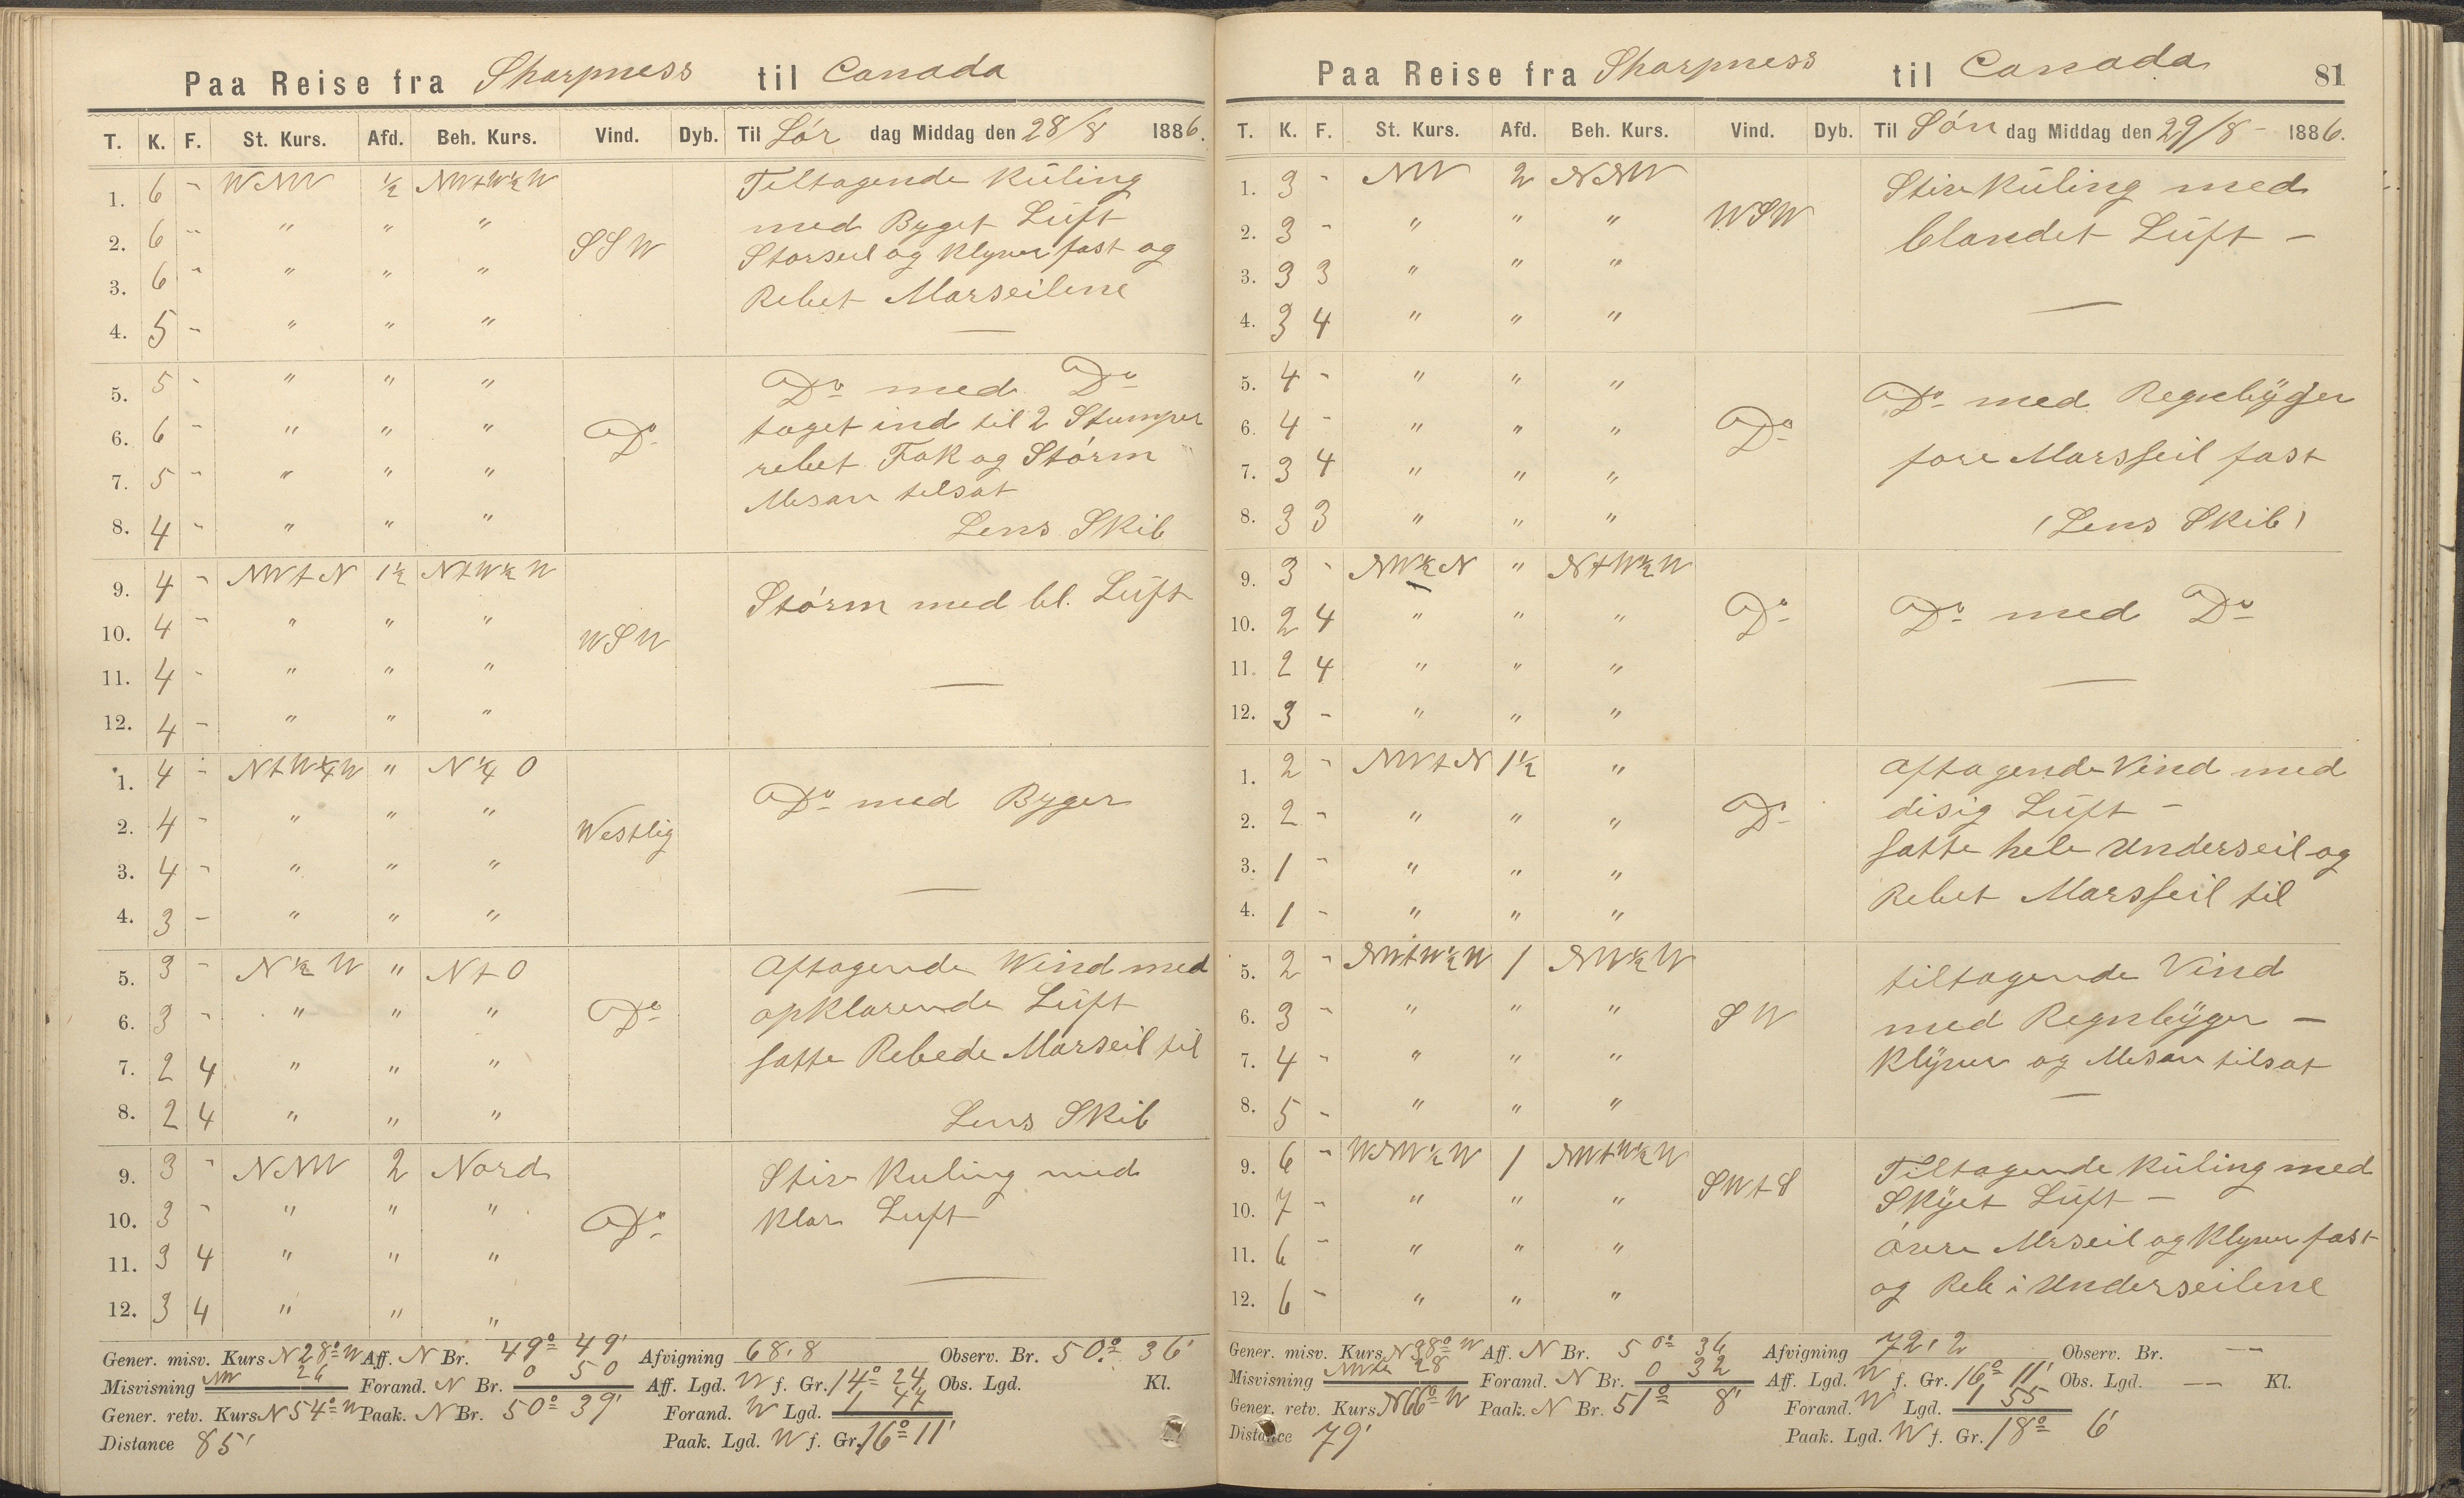 Paa Reise fra Sharpness til Canada
T. K. F. St. Kurs. Afd. Beh. Kurs. Vind. Dyb. Til Lör dag Middag den 28/8 1886.
1. 6 - WNW ½ NWtW½W Tiltagende Kuling
2. 6 - " " " SSW med Byget Luft
Storseil og Klyver fast og
3. 6 - " " "
Rebet Marseilene
4. 5 - " " "
5. 5 - " " " Do med Do
6. 6 - " " " Do taget ind til 2 Stumper
7. 5 - " " " rebet Fok og Störm
Mesan tilsat
8. 4 - " " " Lens Skib
9. 4 - NWtN 1½ NtW½W Störm med bl. Luft
10. 4 - " " " WSW
11. 4 - " " "
12. 4 - " " "
1. 4 - NtW¼W " N¼O Do med Byger
2. 4 - " " " Westlig
3. 4 - " " "
4. 3 - " " "
5. 3 - N½W " NtO Aftagende Wind med
6. 3 - " " " Do opklarende Luft
7. 2 4 " " " satte Rebede Marseil til
8. 2 4 " " " Lens Skib
9. 3 - NNW 2 Nord Stiv Kuling med
10. 3 - " " " Do Klar Luft
11. 3 4 " " "
12. 3 4 " " "
Gener. misv. Kurs N28°W Aff. N Br. 49° 49' Afvigning 68,8 Observ. Br. 50° 36'
Misvisning NW 26 Forand. N Br. 0 50 Aff. Lgd. W f. Gr. 14° 24 Obs. Lgd. Kl.
Gener. retv. Kurs N54°W Paak. N Br. 50° 39' Forand. W Lgd. 1 47
Distance 85' Paak. Lgd. W f. Gr. 16° 11'
Paa Reise fra Sharpness til Canada 81
T. K. F. St. Kurs. Afd. Beh. Kurs. Vind. Dyb. Til Sön dag Middag den 29/8 - 1886.
1. 3 - NW 2 NNW Stiv Kuling med
2. 3 - " " " WSW blandet Luft -
3. 3 3 " " "
4. 3 4 " " "
5. 4 - " " " Do med Regnbyger
6. 4 - " " " Do
7. 3 4 " " " fore Marsseil fast
8. 3 3 " " " (Lens Skib)
9. 3 - NW½N " NtW½W
10. 2 4 " " " Do Do med Do
11. 2 4 " " "
12. 3 - " " "
1. 2 - NWtN 1½ " aftagende Vind med
2. 2 - " " " Do disig Luft -
3. 1 - " " " satte hele Underseil og
4. 1 - " " " Rebet Marsseil til
5. 2 - NWtW½W 1 NW½W tiltagende Vind
6. 3 - " " " SW med Regnbyger -
7. 4 - " " " Klyver og Mesan tilsat
8. 5 - " " "
9. 6 - WNW½W 1 NWtW½W Tiltagende Kuling med
10. 7 - " " " SWtS Skyet Luft -
11. 6 - " " " övre Mrseil og Klyver fast
12. 6 - " " " og Reb i Underseilene
Gener. misv. Kurs N38°W Aff. N Br. 50° 36 Afvigning 72,2 Observ. Br. --
Misvisning 28 Forand. N Br. 0 32 Aff. Lgd. W f. Gr. 16° 11' Obs. Lgd. -- Kl.
Gener. retv. Kurs N66°W Paak. N Br. 51° 8' Forand. W Lgd. 1 55
Distance 79' Paak. Lgd. W f. Gr. 18° 6'